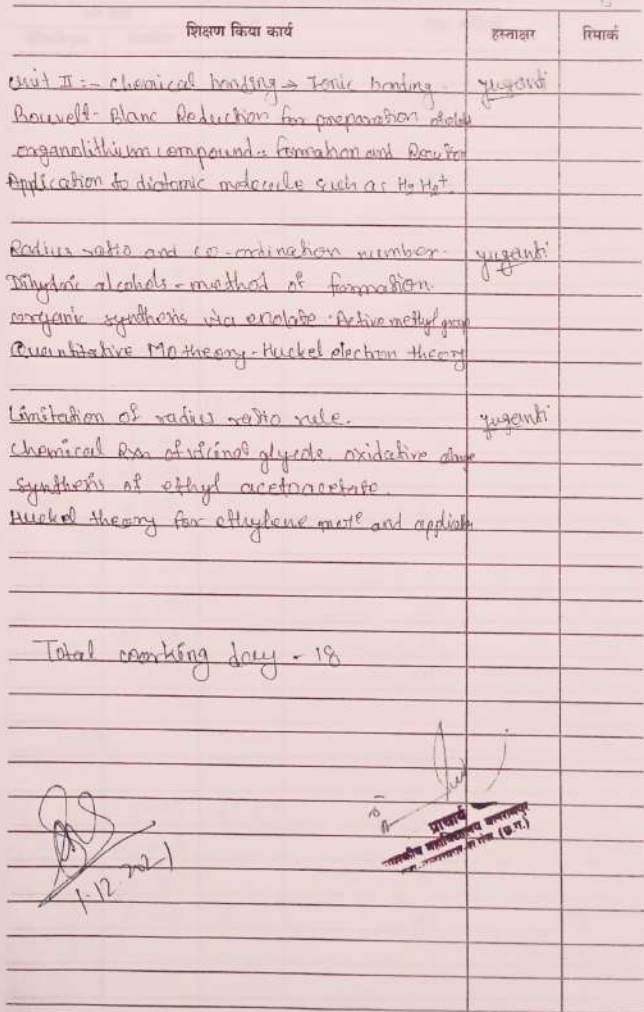 शिक्षण किया कार्य हस्ताक्षर रिमार्क
Unit II :- Chemical bonding → Ionic bonding. yuganti
Bouvelt-Blanc Reduction for preparation of
organolithium compound: formation and
Application to diatomic molecule such as H2 H2+
Radius ratio and co-ordination number. yuganti
Dihydric alcohols - method of formation.
organic synthesis via enolate. Active methyl group
Quantitative MO theory - Huckel electron theory
Limitation of radius ratio rule. yuganti
Chemical Rxn of vicinal glycole, oxidative
Synthesis of ethyl acetoacetate.
Huckel theory for ethylene and
Total working day - 18
प्राचार्य
महाविद्यालय बलरामपुर
(छ.ग.)
1.12.2021